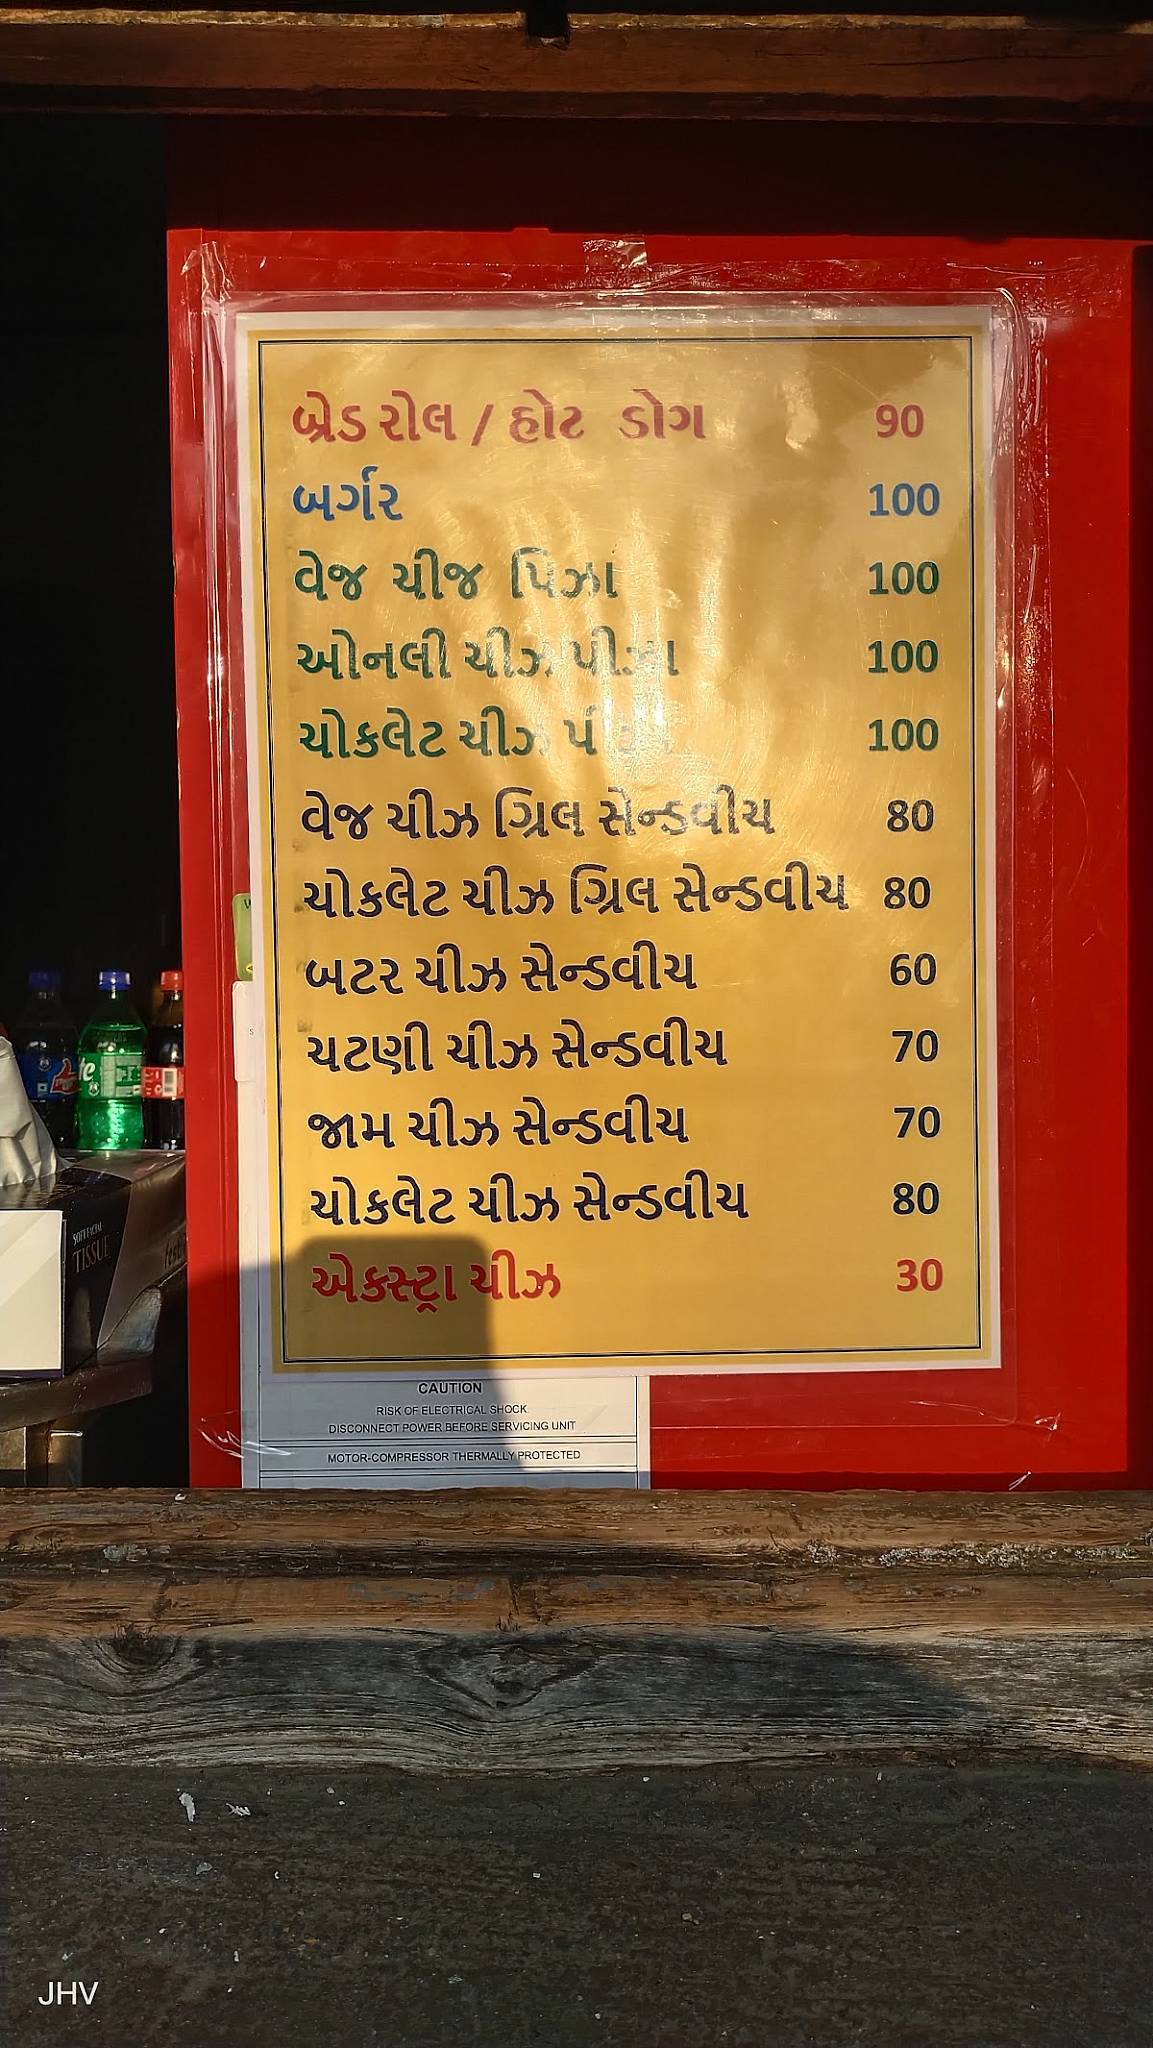 બ્રેડ રોલ / હોટ ડોગ 90
બર્ગર 100
વેજ ચીજ પિઝા 100
ઓનલી ચીઝ પીઝા 100
ચોકલેટ ચીઝ 100
વેજ ચીઝ ગ્રિલ સેન્ડવીચ 80
ચોકલેટ ચીઝ ગ્રિલ સેન્ડવીચ 80
બટર ચીઝ સેન્ડવીચ 60
ચટણી ચીઝ સેન્ડવીચ 70
જામ ચીઝ સેન્ડવીચ 70
ચોકલેટ ચીઝ સેન્ડવીચ 80
એકસ્ટ્રા ચીઝ 30
SOFT FACIAL
TISSUE
CAUTION
RISK OF ELECTRICAL SHOCK
DISCONNECT POWER BEFORE SERVICING UNIT
MOTOR-COMPRESSOR THERMALLY PROTECTED
JHV